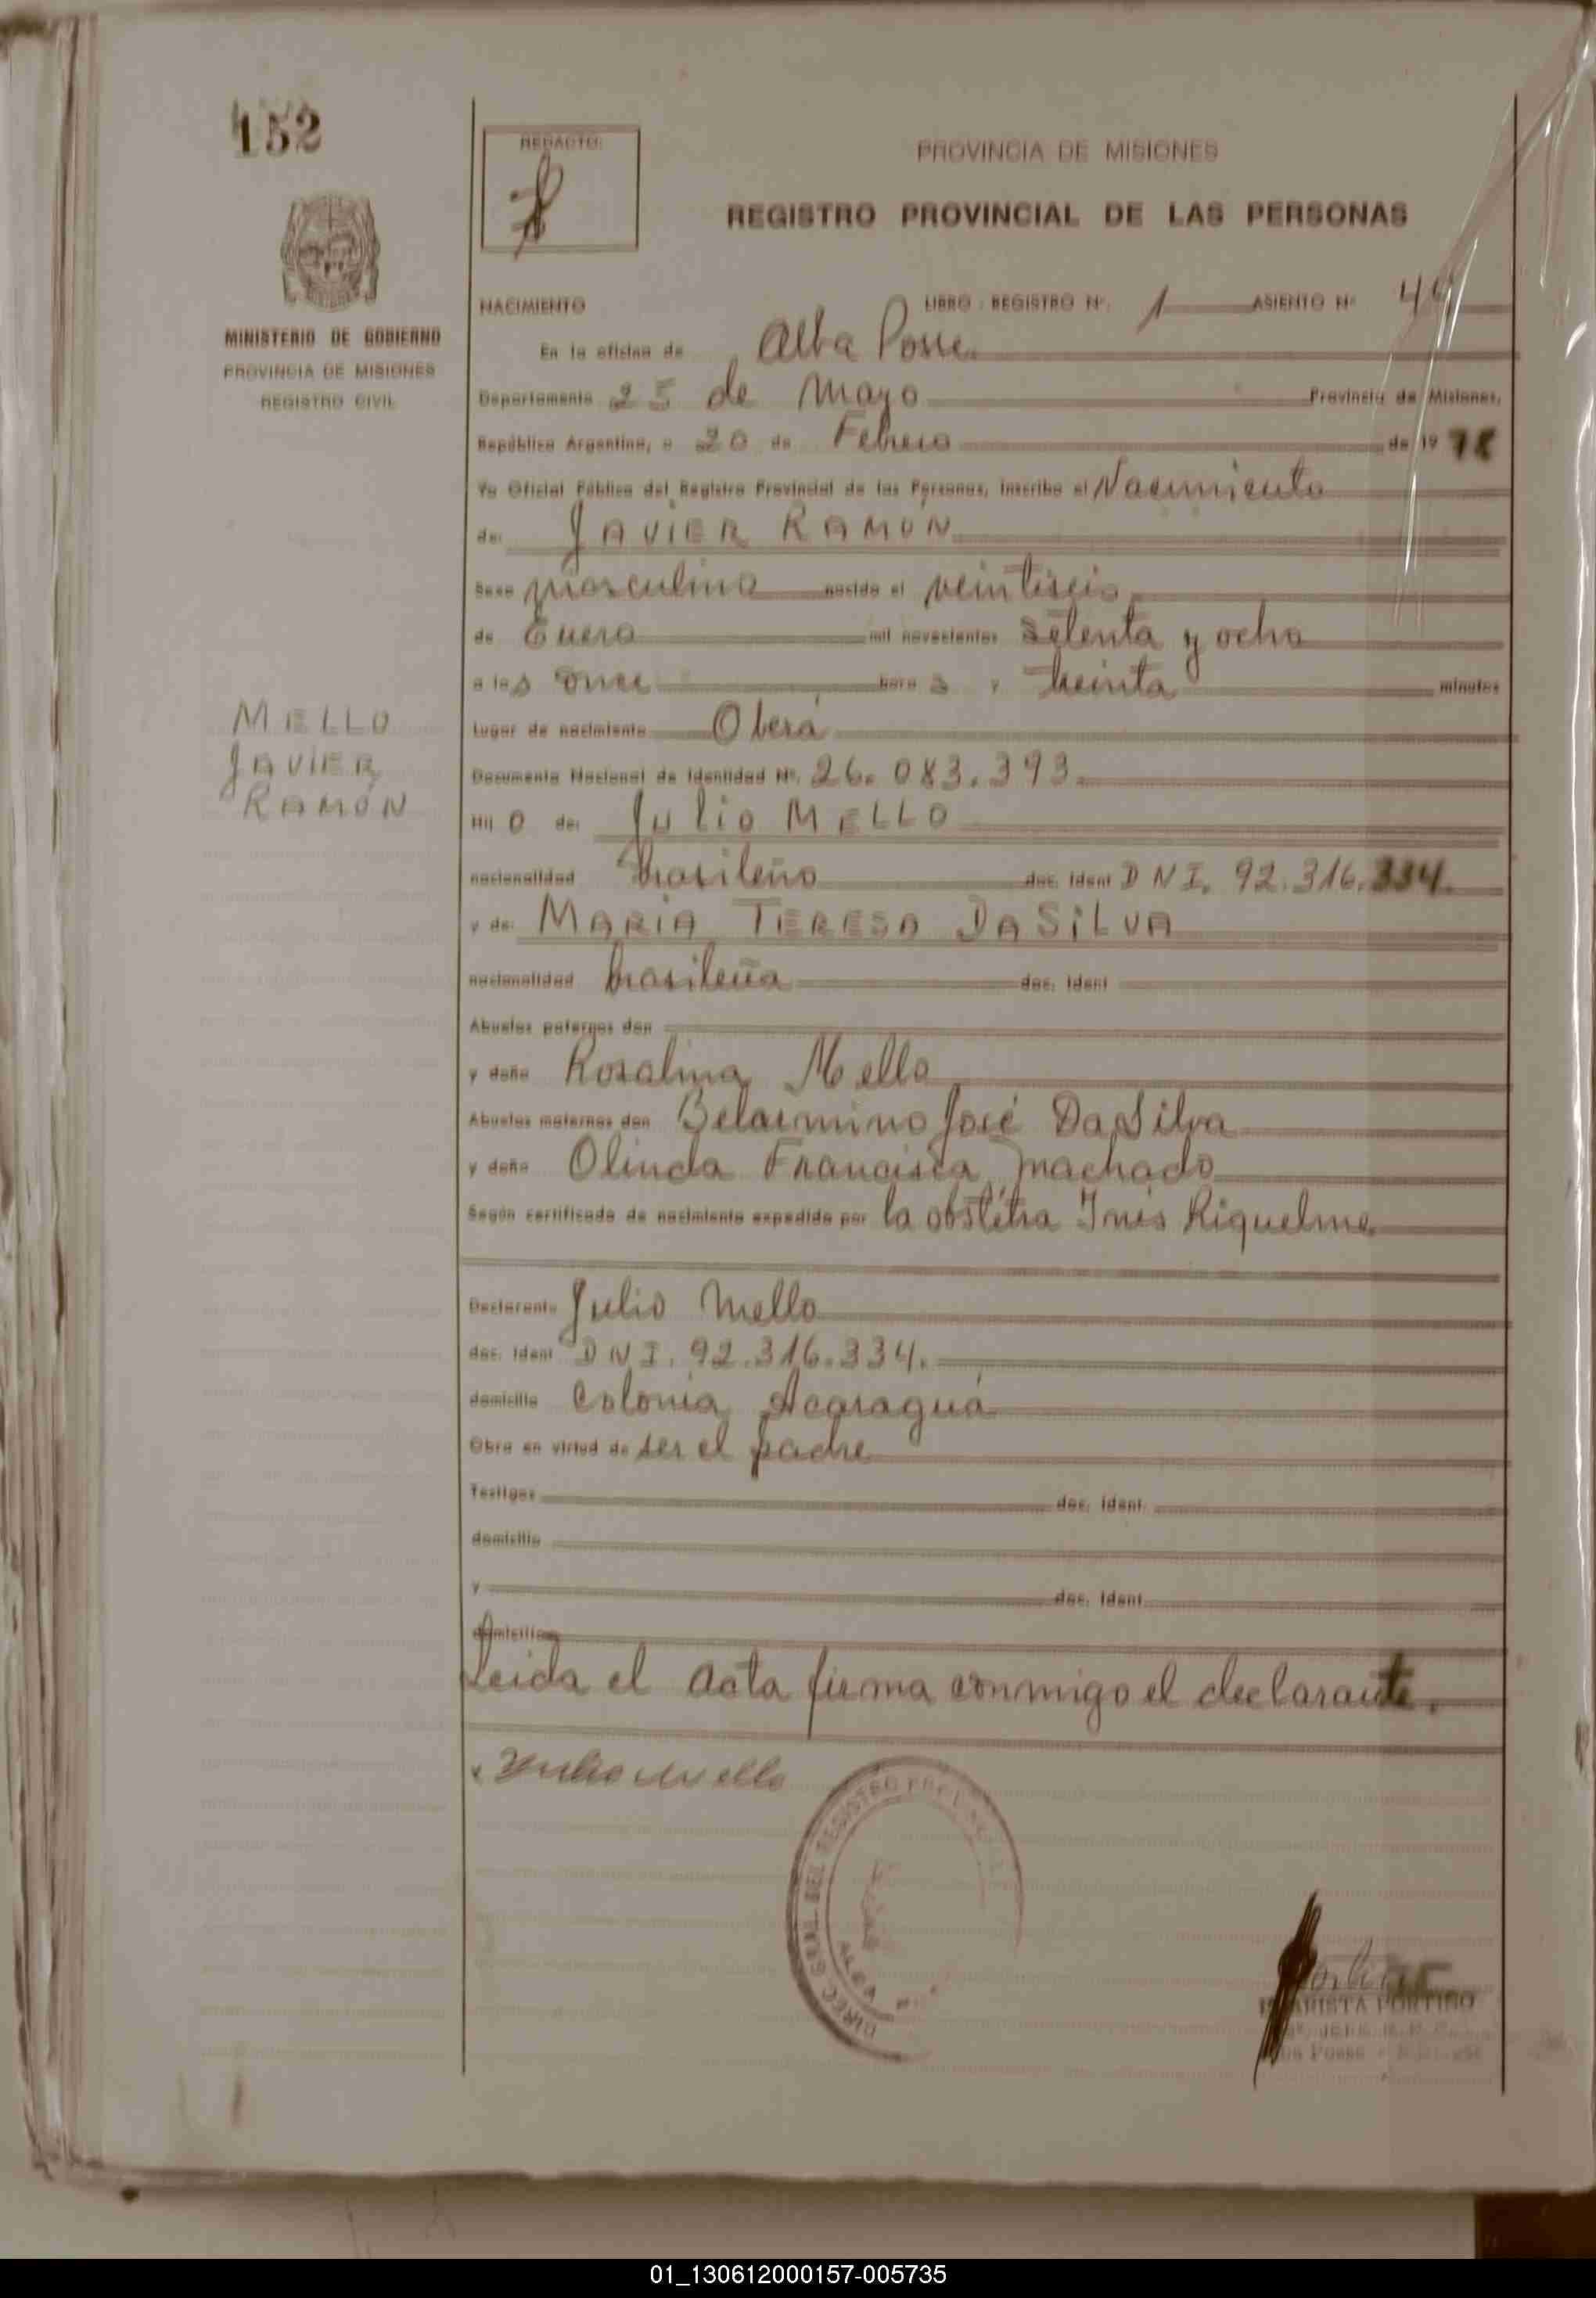 152
REDACTO:
PROVINCIA DE MISIONES
REGISTRO PROVINCIAL DE LAS PERSONAS
MINISTERIO DE GOBIERNO
PROVINCIA DE MISIONES
REGISTRO CIVIL
NACIMIENTO LIBRO - REGISTRO Nº. 1 ASIENTO Nº
En la oficina de Alba Posse
Departamento 25 de Mayo Provincia de Misiones,
República Argentina, a 20 de Febrero de 1978
Yo Oficial Público del Registro Provincial de las Personas, inscribo el Nacimiento
de: JAVIER RAMÓN
Sexo masculino nacido el veintiseis
de Enero mil novecientos setenta y ocho
a las once horas y treinta minutos
Lugar de nacimiento Oberá
Documento Nacional de Identidad Nº. 26.083.393.
MELLO
JAVIER
RAMÓN
Hijo de: Julio MELLO
nacionalidad brasileño doc. ident DNI. 92.316.334.
y de: MARIA TERESA DASILVA
nacionalidad brasileña doc. ident
Abuelos paternos don
y doña Rosalina Mello
Abuelos maternos don Belarmino José DaSilva
y doña Olinda Francisca Machado
Según certificado de nacimiento expedido por la obstétra Inés Riquelme
Declarante Julio Mello
doc. ident DNI. 92.316.334.
domicilio Colonia Acaraguá
Obra en virtud de ser el padre
Testigos doc. ident.
domicilio
y doc. ident.
domicilio
Leida el acta firma conmigo el declarante.
x Julio Mello
DIREC. GRAL. DEL REGISTRO
ALBA
PORTIÑO
01_130612000157-005735